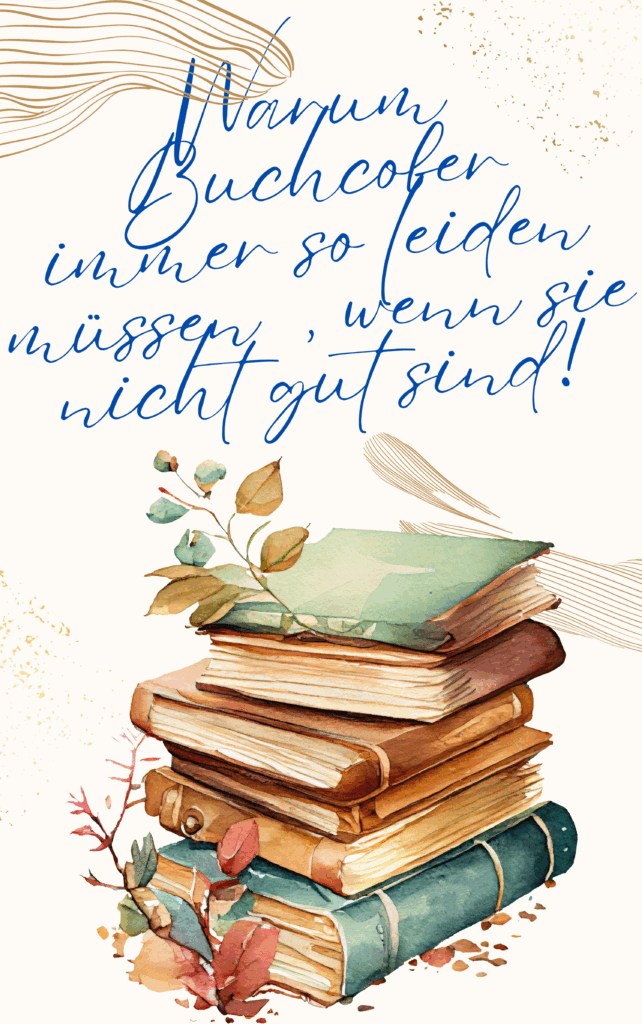 Warum
Buchcofer
immer so leiden
müssen , wenn sie
nicht gut sind!